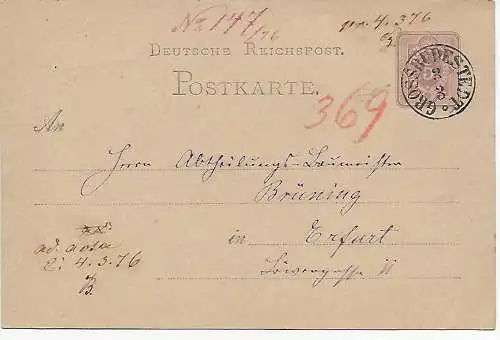 No 147/76
pr. 4.3.76
DEUTSCHE REICHSPOST.
POSTKARTE.
GROSSRUDESTEDT
3
3
369
An
Herrn Abtheilungs-Baumeister
Brüning
in Erfurt
Löwengasse 11
ad acta
E: 4.3.76
B.